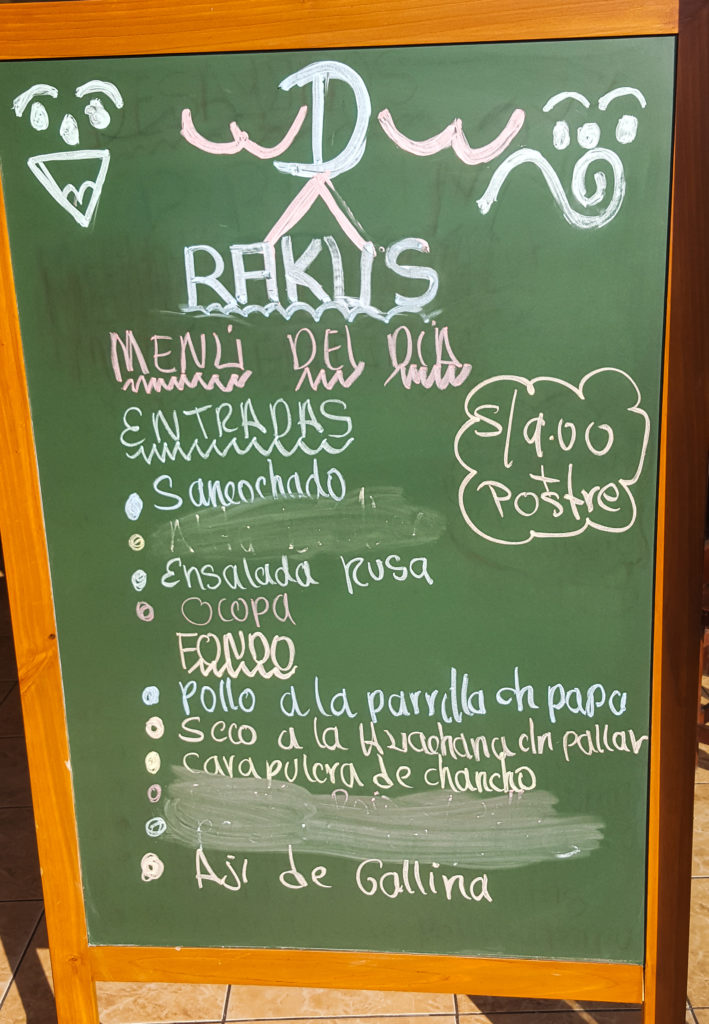 D
RAKUS
MENÚ DEL DÍA
ENTRADAS
S/9.00
+
Postre
Sancochado
Ensalada Rusa
Ocopa
FONDO
Pollo a la parrilla cn papa
Seco a la Huachana cn pallar
Carapulcra de chancho
Ají de Gallina